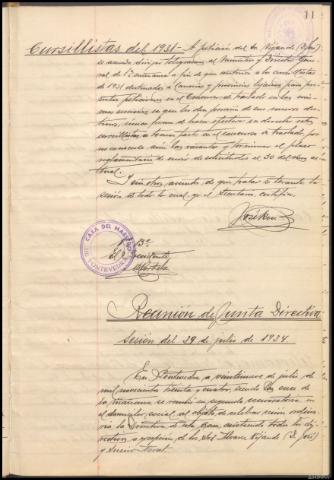 11
Cursillistas del 1931.- A petición del Sr. Vijande (Dn José)
se acuerda dirigir telegramas al Ministro y Director Gene-
ral de 1ª enseñanza a fin de que autorice a los cursillistas
de 1931 destinados a Canarias y provincias lejanas para pre-
sentar peticiones en el Concurso de traslado en las mismas
secciones en que les den posesión de sus nuevos des-
tinos, única forma de hacer efectivo su derecho estos
cursillistas a tomar parte en el concurso de traslado por
no conocerse aún las vacantes y terminar el plazo
reglamentario de envío de solicitudes el 30 del mes ac-
tual.
Y sin otros asuntos de que tratar se levanta la
sesión de todo lo cual yo el Secretario certifico.
Vº Bº
El Presidente
CASA DEL MAESTRO
PONTEVEDRA
Reunión de Junta Directiva
Sesión del 29 de julio de 1934.
En Pontevedra a veintinueve de julio de
mil novecientos treinta y cuatro, siendo las once de
la mañana se reunió en segunda convocatoria en
el domicilio social al objeto de celebrar sesión ordina-
ria la Directiva de esta casa, asistiendo todos los di-
rectivos a excepción de los Sres Álvarez Vijande (D. José)
y